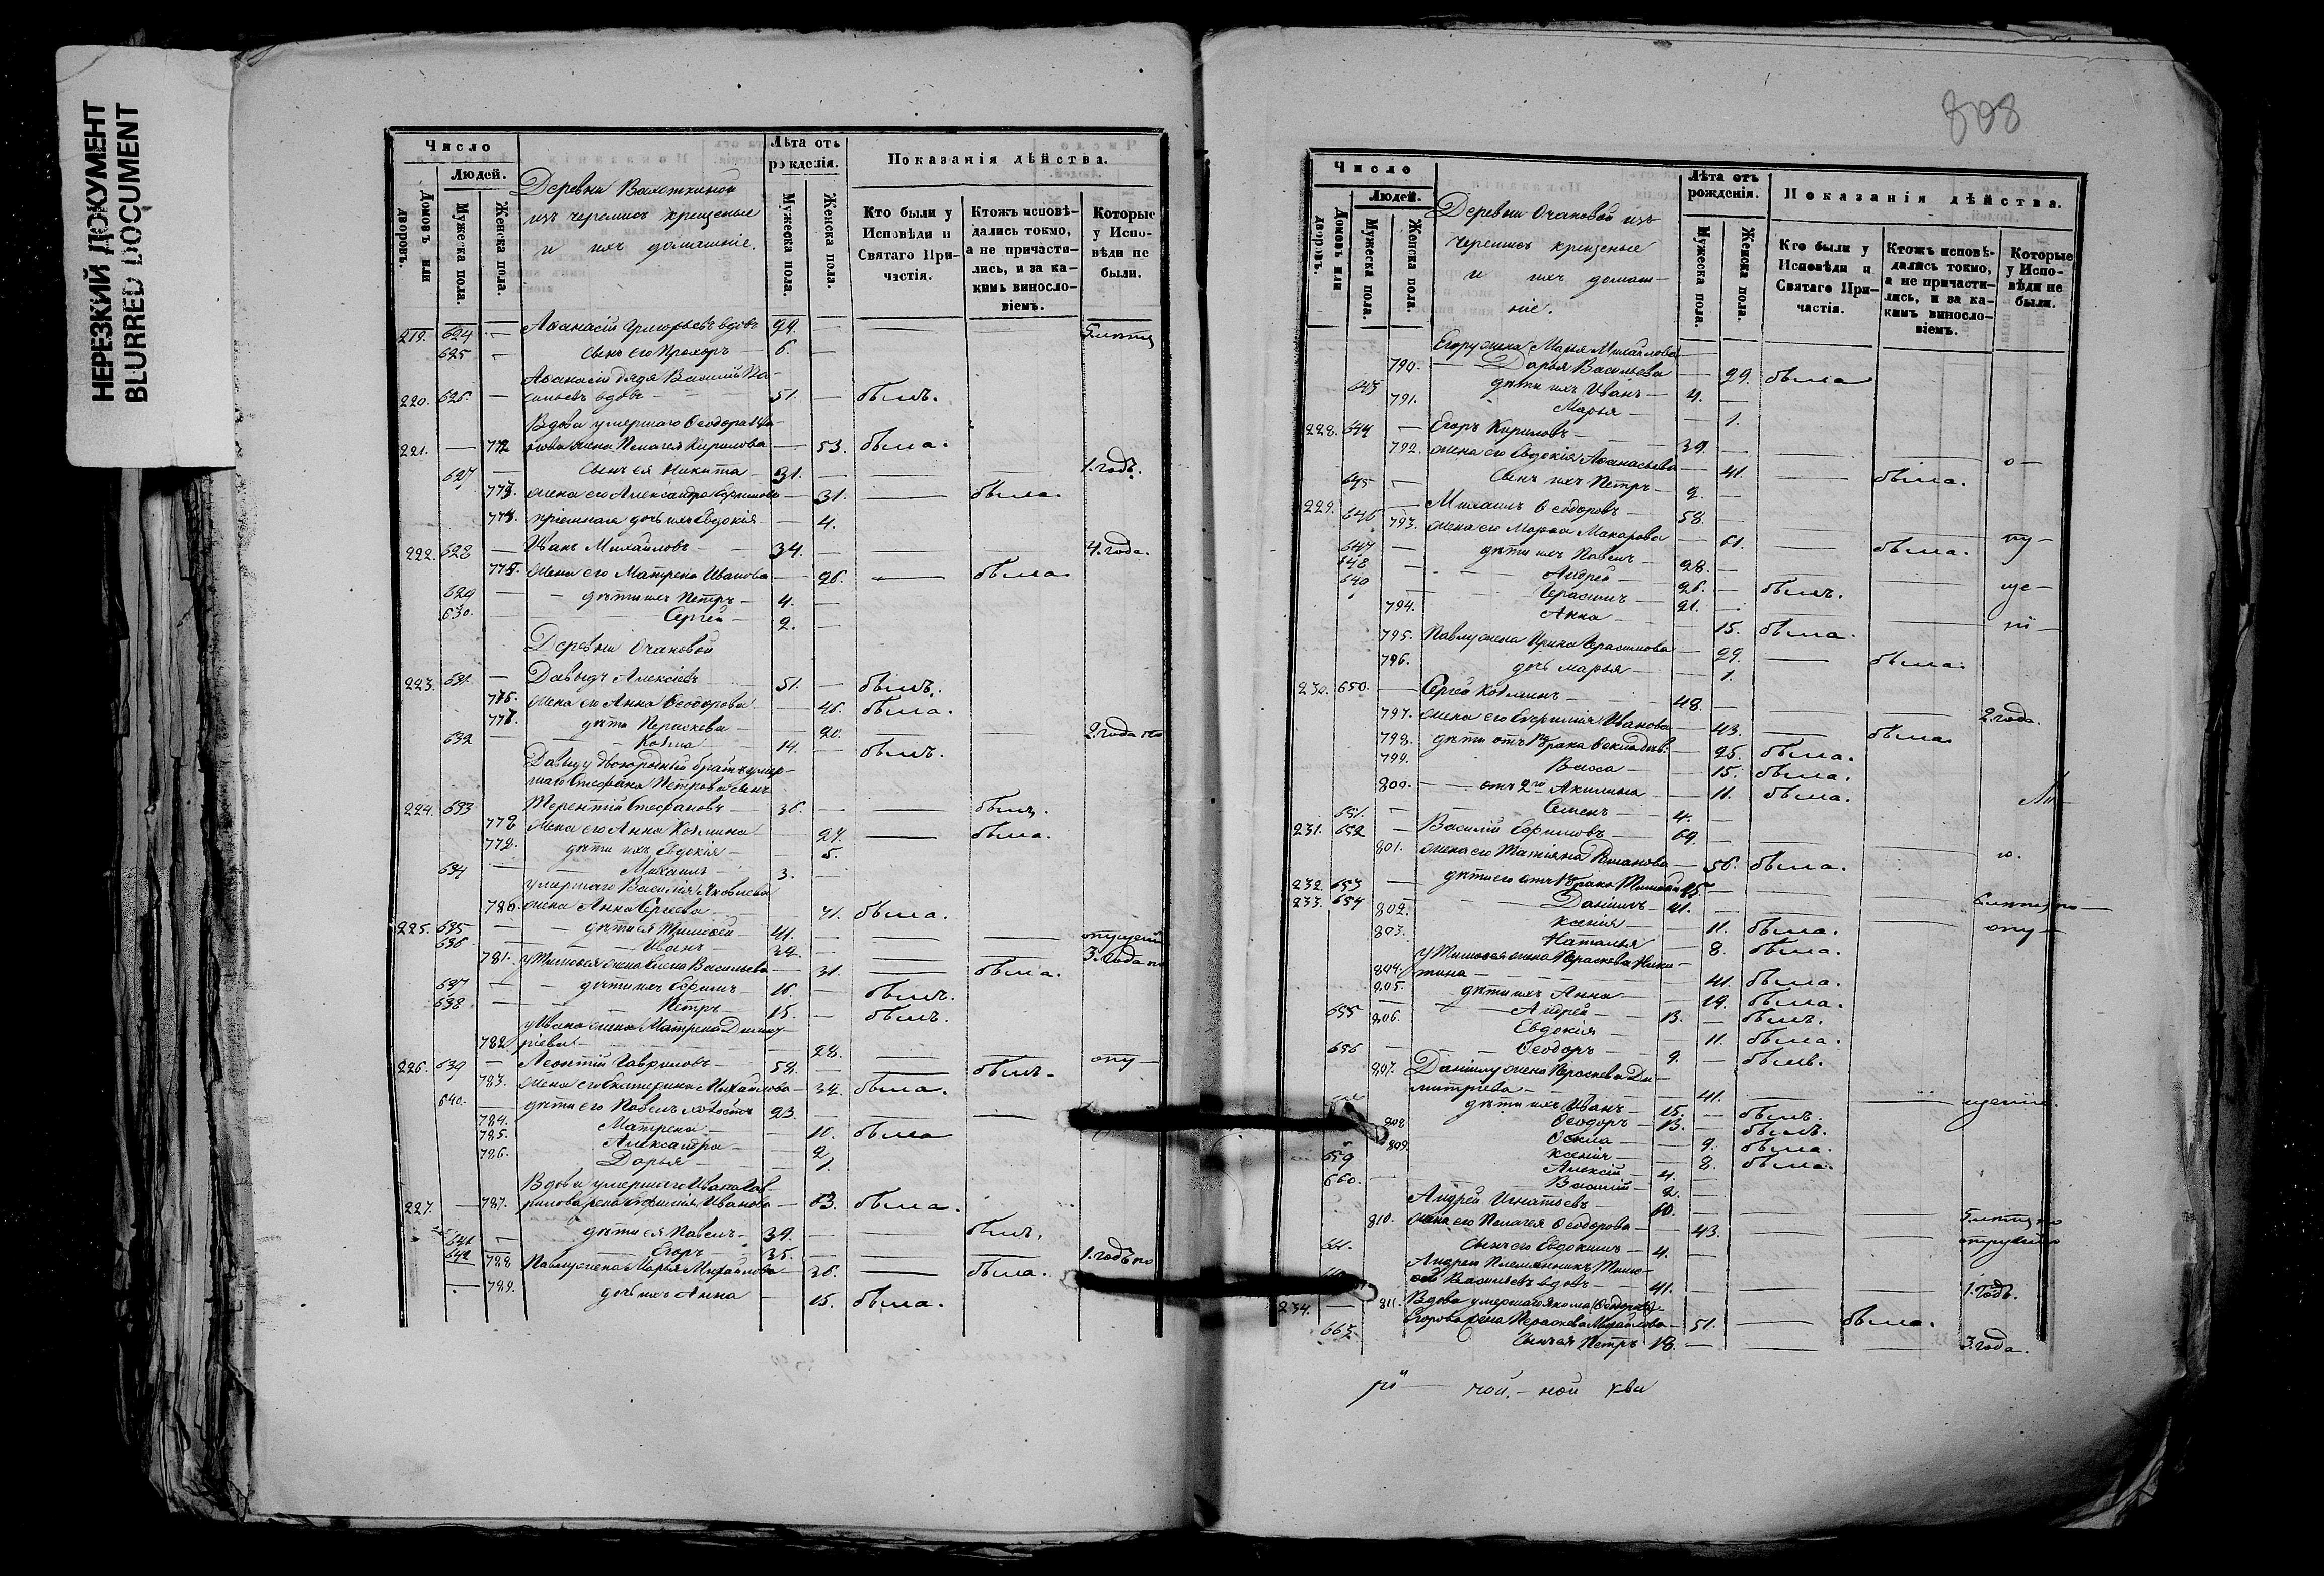 НЕРЕЗКИЙ ДОКУМЕНТ
BLURRED DOCUMENT
Число
Людей.
Домовъ или дворовъ.
Мужеска пола.
Женска пола.
Деревни
изъ черемисъ крещеные
и ихъ домашніе.
Лѣта отъ рожденія.
Мужеска пола.
Женска пола.
Показанія дѣйства.
Кто были у Исповѣди и Святаго Причастія.
Ктожъ исповѣдались токмо, а не причастились, и за какимъ винословіемъ.
Которые у Исповѣди не были.
219. 624 Аѳанасій Григорьевъ вдовъ 29.
625 сынъ его Прохоръ 6.
Аѳанасію дядя Василій Ва-
220. 626. сильевъ вдовъ 51. былъ.
Вдова умершаго Ѳеодора
221. 772 жена Пелагея Кирилова 53. была.
627 сынъ ея Никита 31. 1. годъ.
773. жена его Александра Ефимова 31. была.
774. пріемная дочь ихъ Евдокія 4.
222. 628 Иванъ Михайловъ 34. 4. года.
775. жена его Матрена Иванова 26. была
629 дѣти ихъ Петръ 4.
630. Сергей 2.
Деревни Очаковой
223. 631. Давыдъ Алексіевъ 51. былъ.
776. жена его Анна Ѳеодорова 46. была.
777. дѣти Параскева 20. 2. года
632 Козма 14. былъ.
Давыду двоюродный братъ умер-
шаго Стефана Петрова сынъ
224. 633 Терентій Стефановъ 36. былъ.
778 жена его Анна Козмина 27. была.
779. дѣти ихъ Евдокія 5.
634 Михаилъ 3.
умершаго Василія Яковлева
780. жена Анна Сергеева 71. была.
225. 635 дѣти ея Тимофей 41. опущен.
636 Иванъ 32. 3. года
781. у Тимофея жена Елена Васильева 31. была.
637 дѣти ихъ Ефимъ 16. былъ.
638 Петръ 15. былъ.
у Ивана жена Матрена Димит-
782 ріева 28.
226. 639 Леонтій Гавриловъ 58. былъ. опу-
783. жена его Екатерина Михайлова 32. была.
640. дѣти его Павелъ холостъ 23.
784. Матрена 11. была
785. Александра 2
786. Дарья 1.
Вдова умершаго Ивана Гав-
227. 787. рилова жена Евфимія Иванова 63. была.
641 дѣти ея Павелъ 39. былъ.
642 Егоръ 35. 1. годъ по
788 Павлу жена Марья Михайлова 36. была.
789. дочь ихъ Анна 15. была.
808
Число
Людей.
Домовъ или дворовъ.
Мужеска пола.
Женска пола.
Деревни Очаковой изъ
черемисъ крещеные
и ихъ домаш-
ніе.
Лѣта отъ рожденія.
Мужеска пола.
Женска пола.
Показанія дѣйства.
Кто были у Исповѣди и Святаго Причастія.
Ктожъ исповѣдались токмо, а не причастились, и за какимъ винословіемъ.
Которые у Исповѣди не были.
Егору жена Марья Михайлова
790. Дарья Васильева 29. была
643 дѣти ихъ Иванъ 4.
791. Марья 1.
228. 644 Егоръ Кириловъ 39. о-
792. жена его Евдокія Аѳанасьева 41. была.
645 сынъ ихъ Петръ 2.
229. 646 Михаилъ Ѳеодоровъ 58. пу-
793. жена его Марѳа Макарова 61. была.
647 дѣти ихъ Павелъ 28.
648 Андрей 26. былъ. ще-
649 Герасимъ 21.
794. Анна 15. была. ні-
795. Павлу жена Ирина Герасимова 29. была.
796. дочь Марья 1.
230. 650. Сергей Козминъ 48. 2. года.
797. жена его Евфимія Иванова 43. была
798. дѣти отъ 1го брака 25. была.
799. Васса 15. была.
800. отъ 2го Акилина 11. была.
651. Семенъ 4.
231. 652 Василій Ефимовъ 69. ю.
801. жена его Татіяна Романова 56. была.
232. 653 дѣти его отъ 1го брака Тимофей 45.
233. 654 Даніилъ 41. опу-
802. Ксенія 11. была.
803. Наталья 8. была.
у Тимофея жена Параскева Ники-
804. тина 41. была.
805. дѣти ихъ Анна 19. была.
655 Андрей 13. былъ.
806. Евдокія 11. была.
656 Ѳеодоръ 9. былъ.
807. Даніилу жена Параскева Ди-
митріева 41. щеніе.
дѣти ихъ Иванъ 15. былъ.
Ѳеодоръ 13. былъ.
808 Ѳекла 9. была.
809. Ксенія 8. была.
659 Алексій 4.
660. Василій 2.
Андрей Игнатьевъ 60. 5. лѣтъ по
810. жена его Пелагея Ѳеодорова 43. опущенію
сынъ его Евдокимъ 4.
Андрею племянникъ Тимо-
фей Васильевъ вдовъ 41. 1. годъ.
234. 811. Вдова умершаго
Егорова жена Параскева Михайлова 51. была.
663 сынъ ея Петръ 18. 3. года.